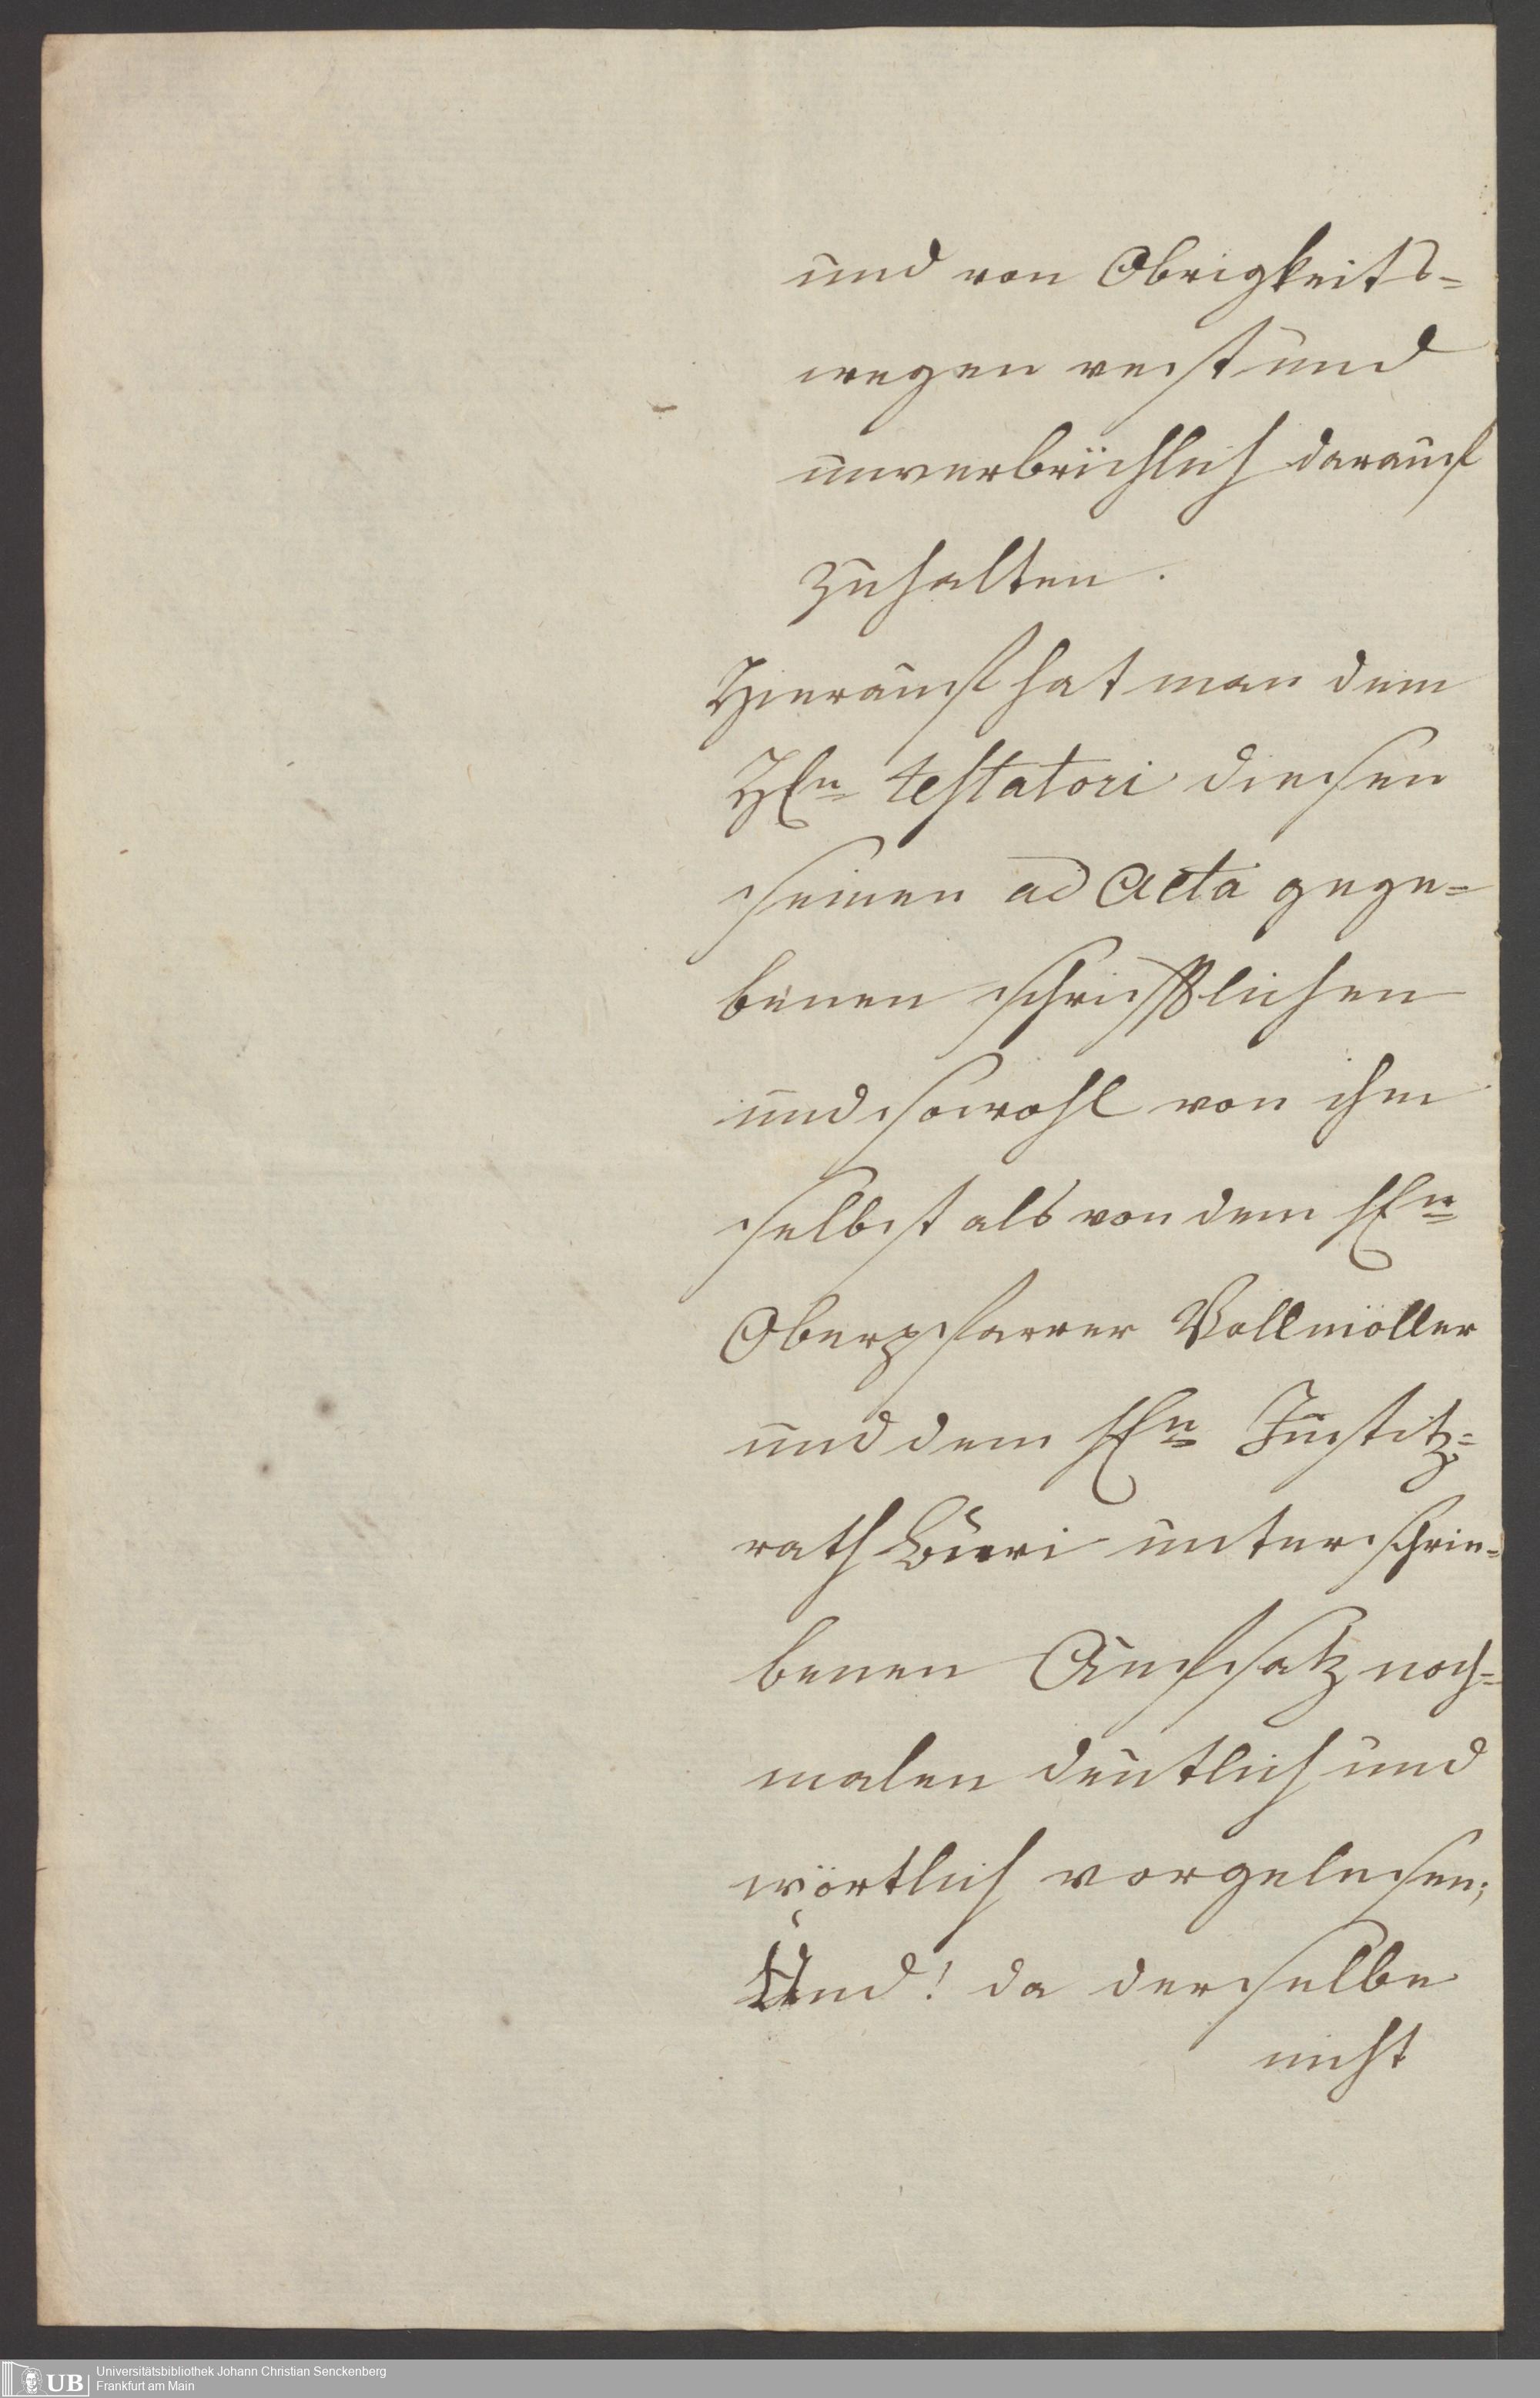 und von Obrigkeits=
wegen vest und
unverbrüchlich darauf
zuhalten.
Hierauf hat man dem
HEn testatori diesen
seinen ad Acta gege=
benen schrifftlichen
und sowohl von ihm
selbst als von dem HEn
Oberpfarrer Vollmöller
und dem HEn Justitz=
rath Buri unterschrie=
benen Aufsatz noch=
malen deutlich und
wörtlich vorgelesen;
Und! da derselbe
nicht
UB
Universitätsbibliothek Johann Christian Senckenberg
Frankfurt am Main